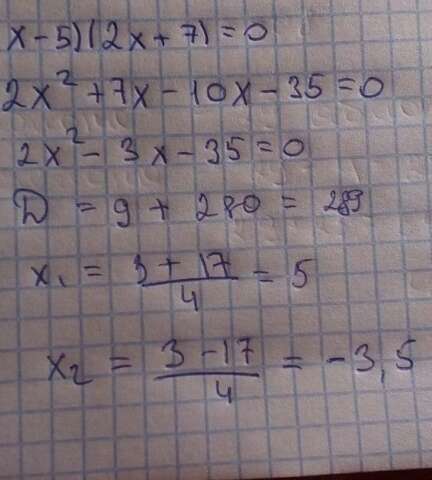 x-5)(2x+7)=0
2x²+7x-10x-35=0
2x²-3x-35=0
D = 9 + 280 = 289
x₁ = 3+17/4 = 5
x₂ = 3-17/4 = -3,5